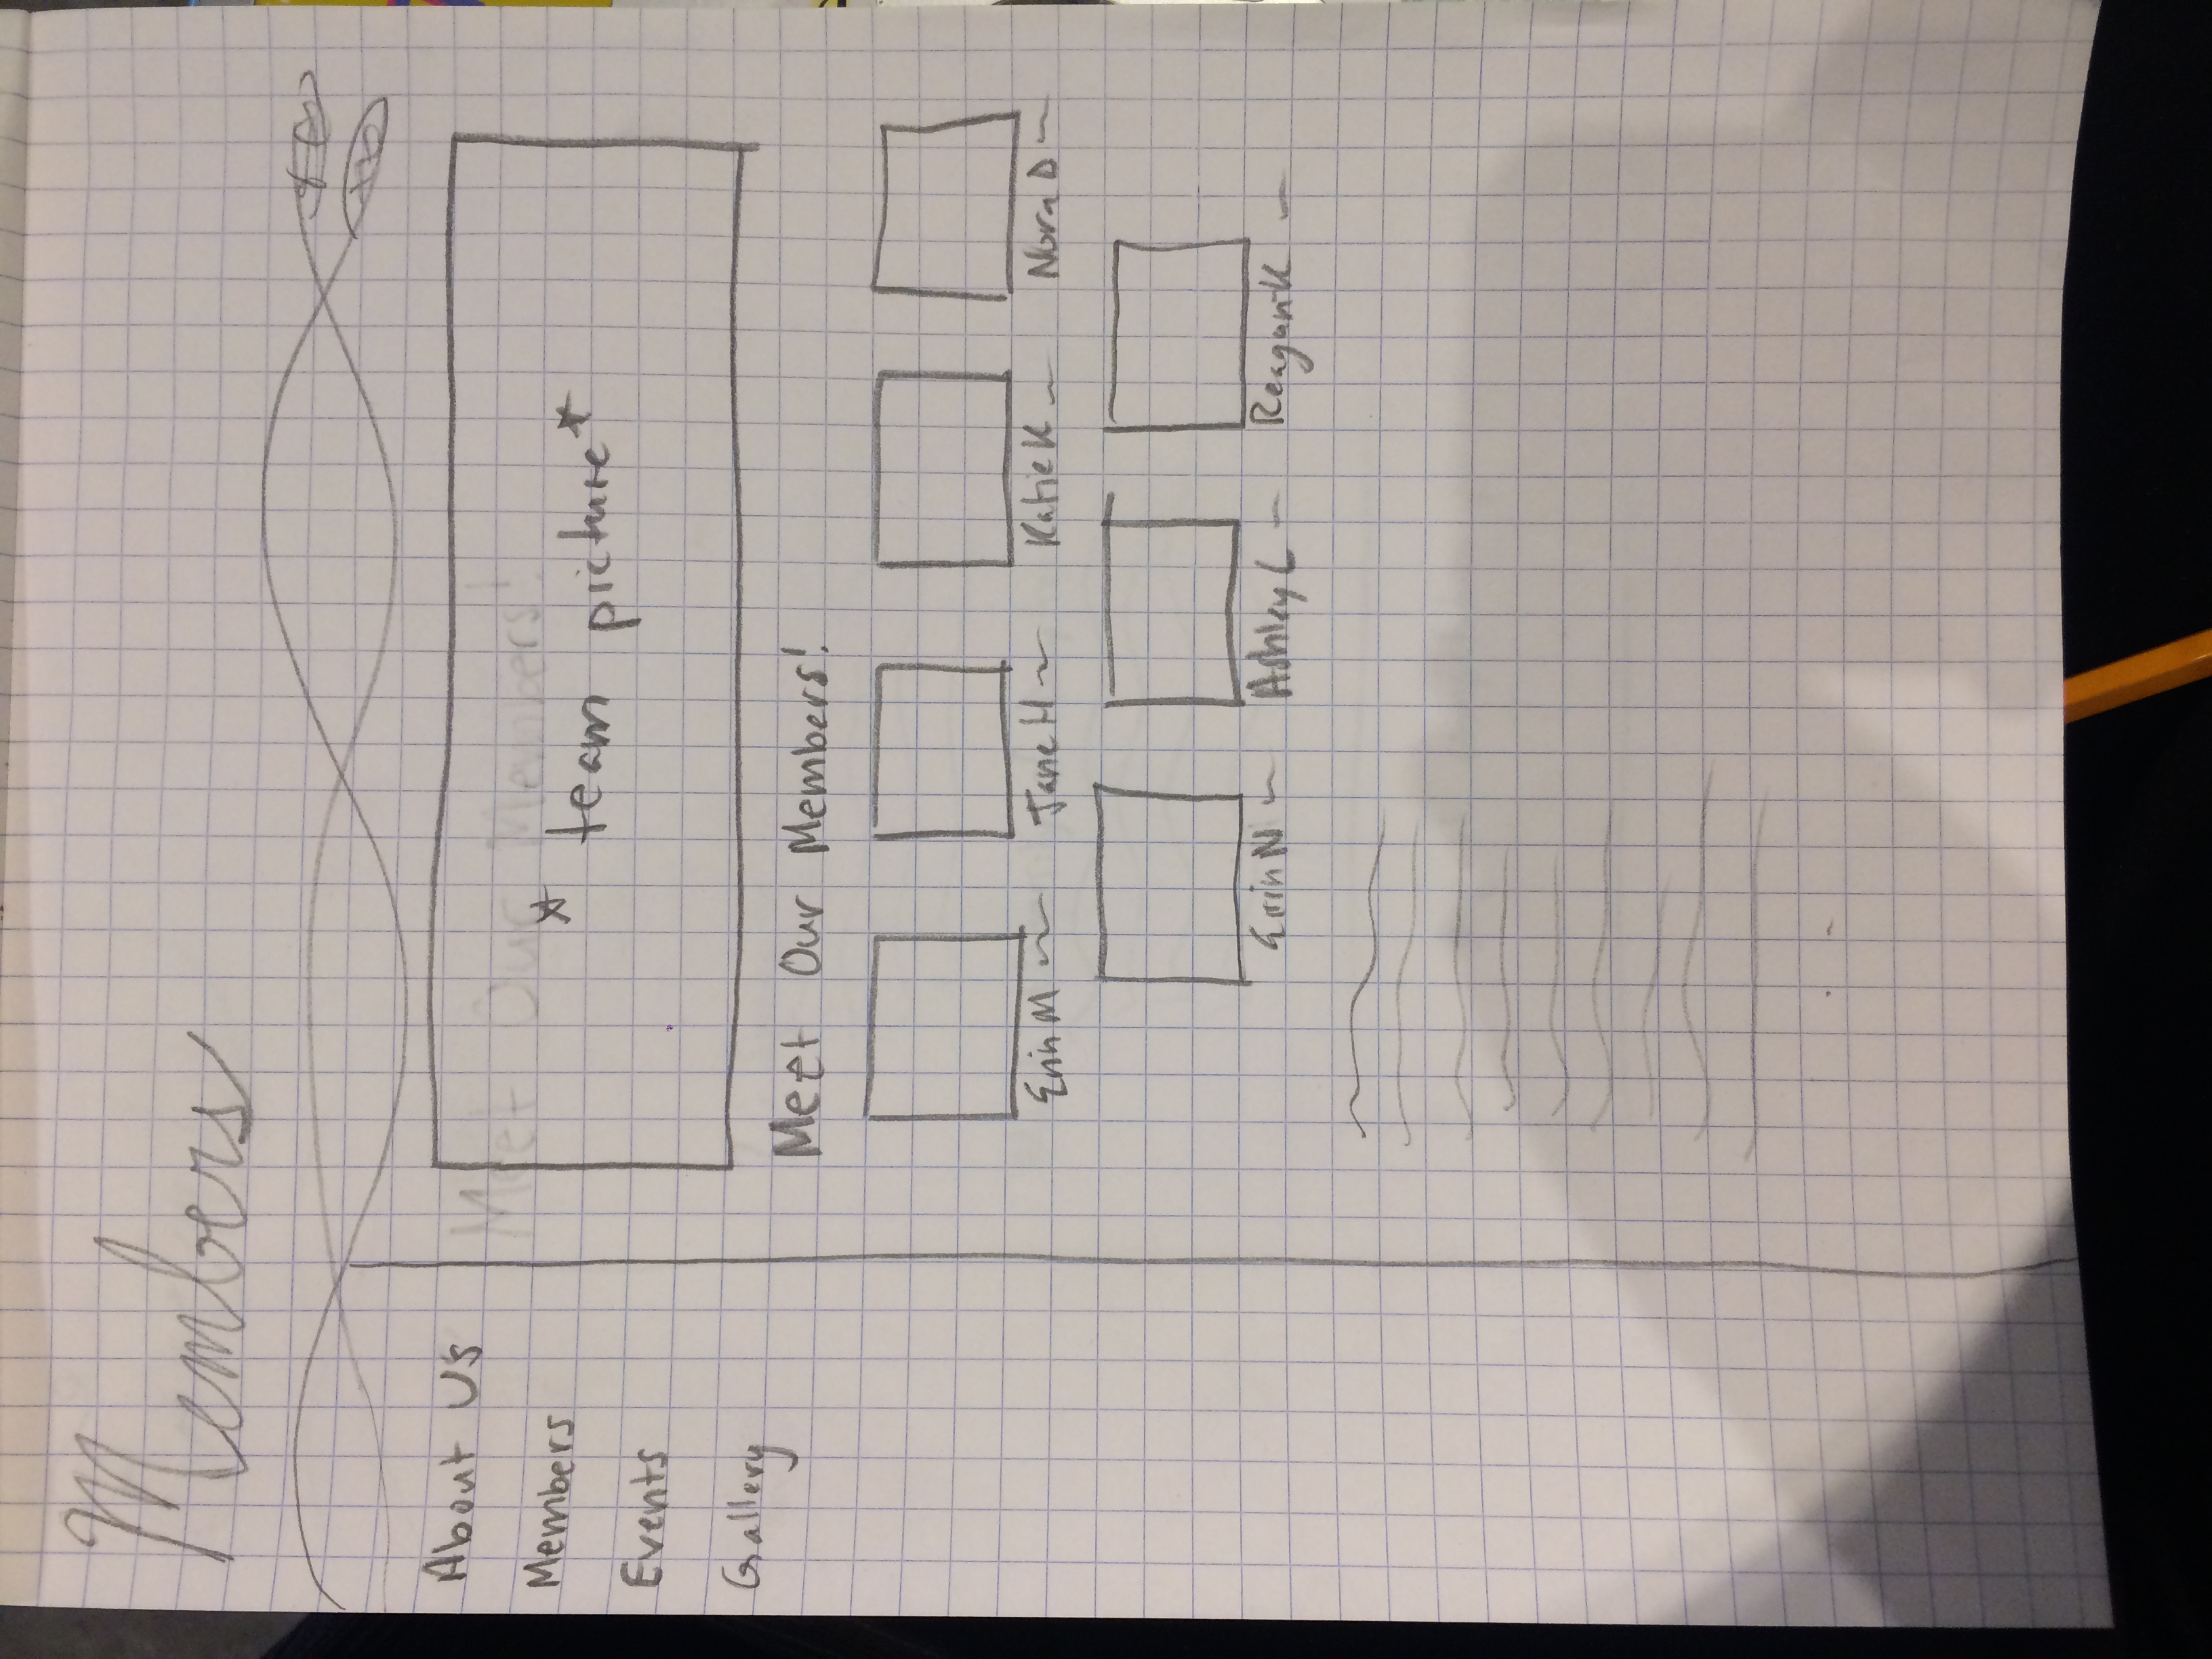 Members
About Us
Members
Events
Gallery
Meet Our Members!
* team picture*
Meet Our Members!
Erin M
Jane H
Katie K
Nora D
Erin N
Ashley L
Reagan K